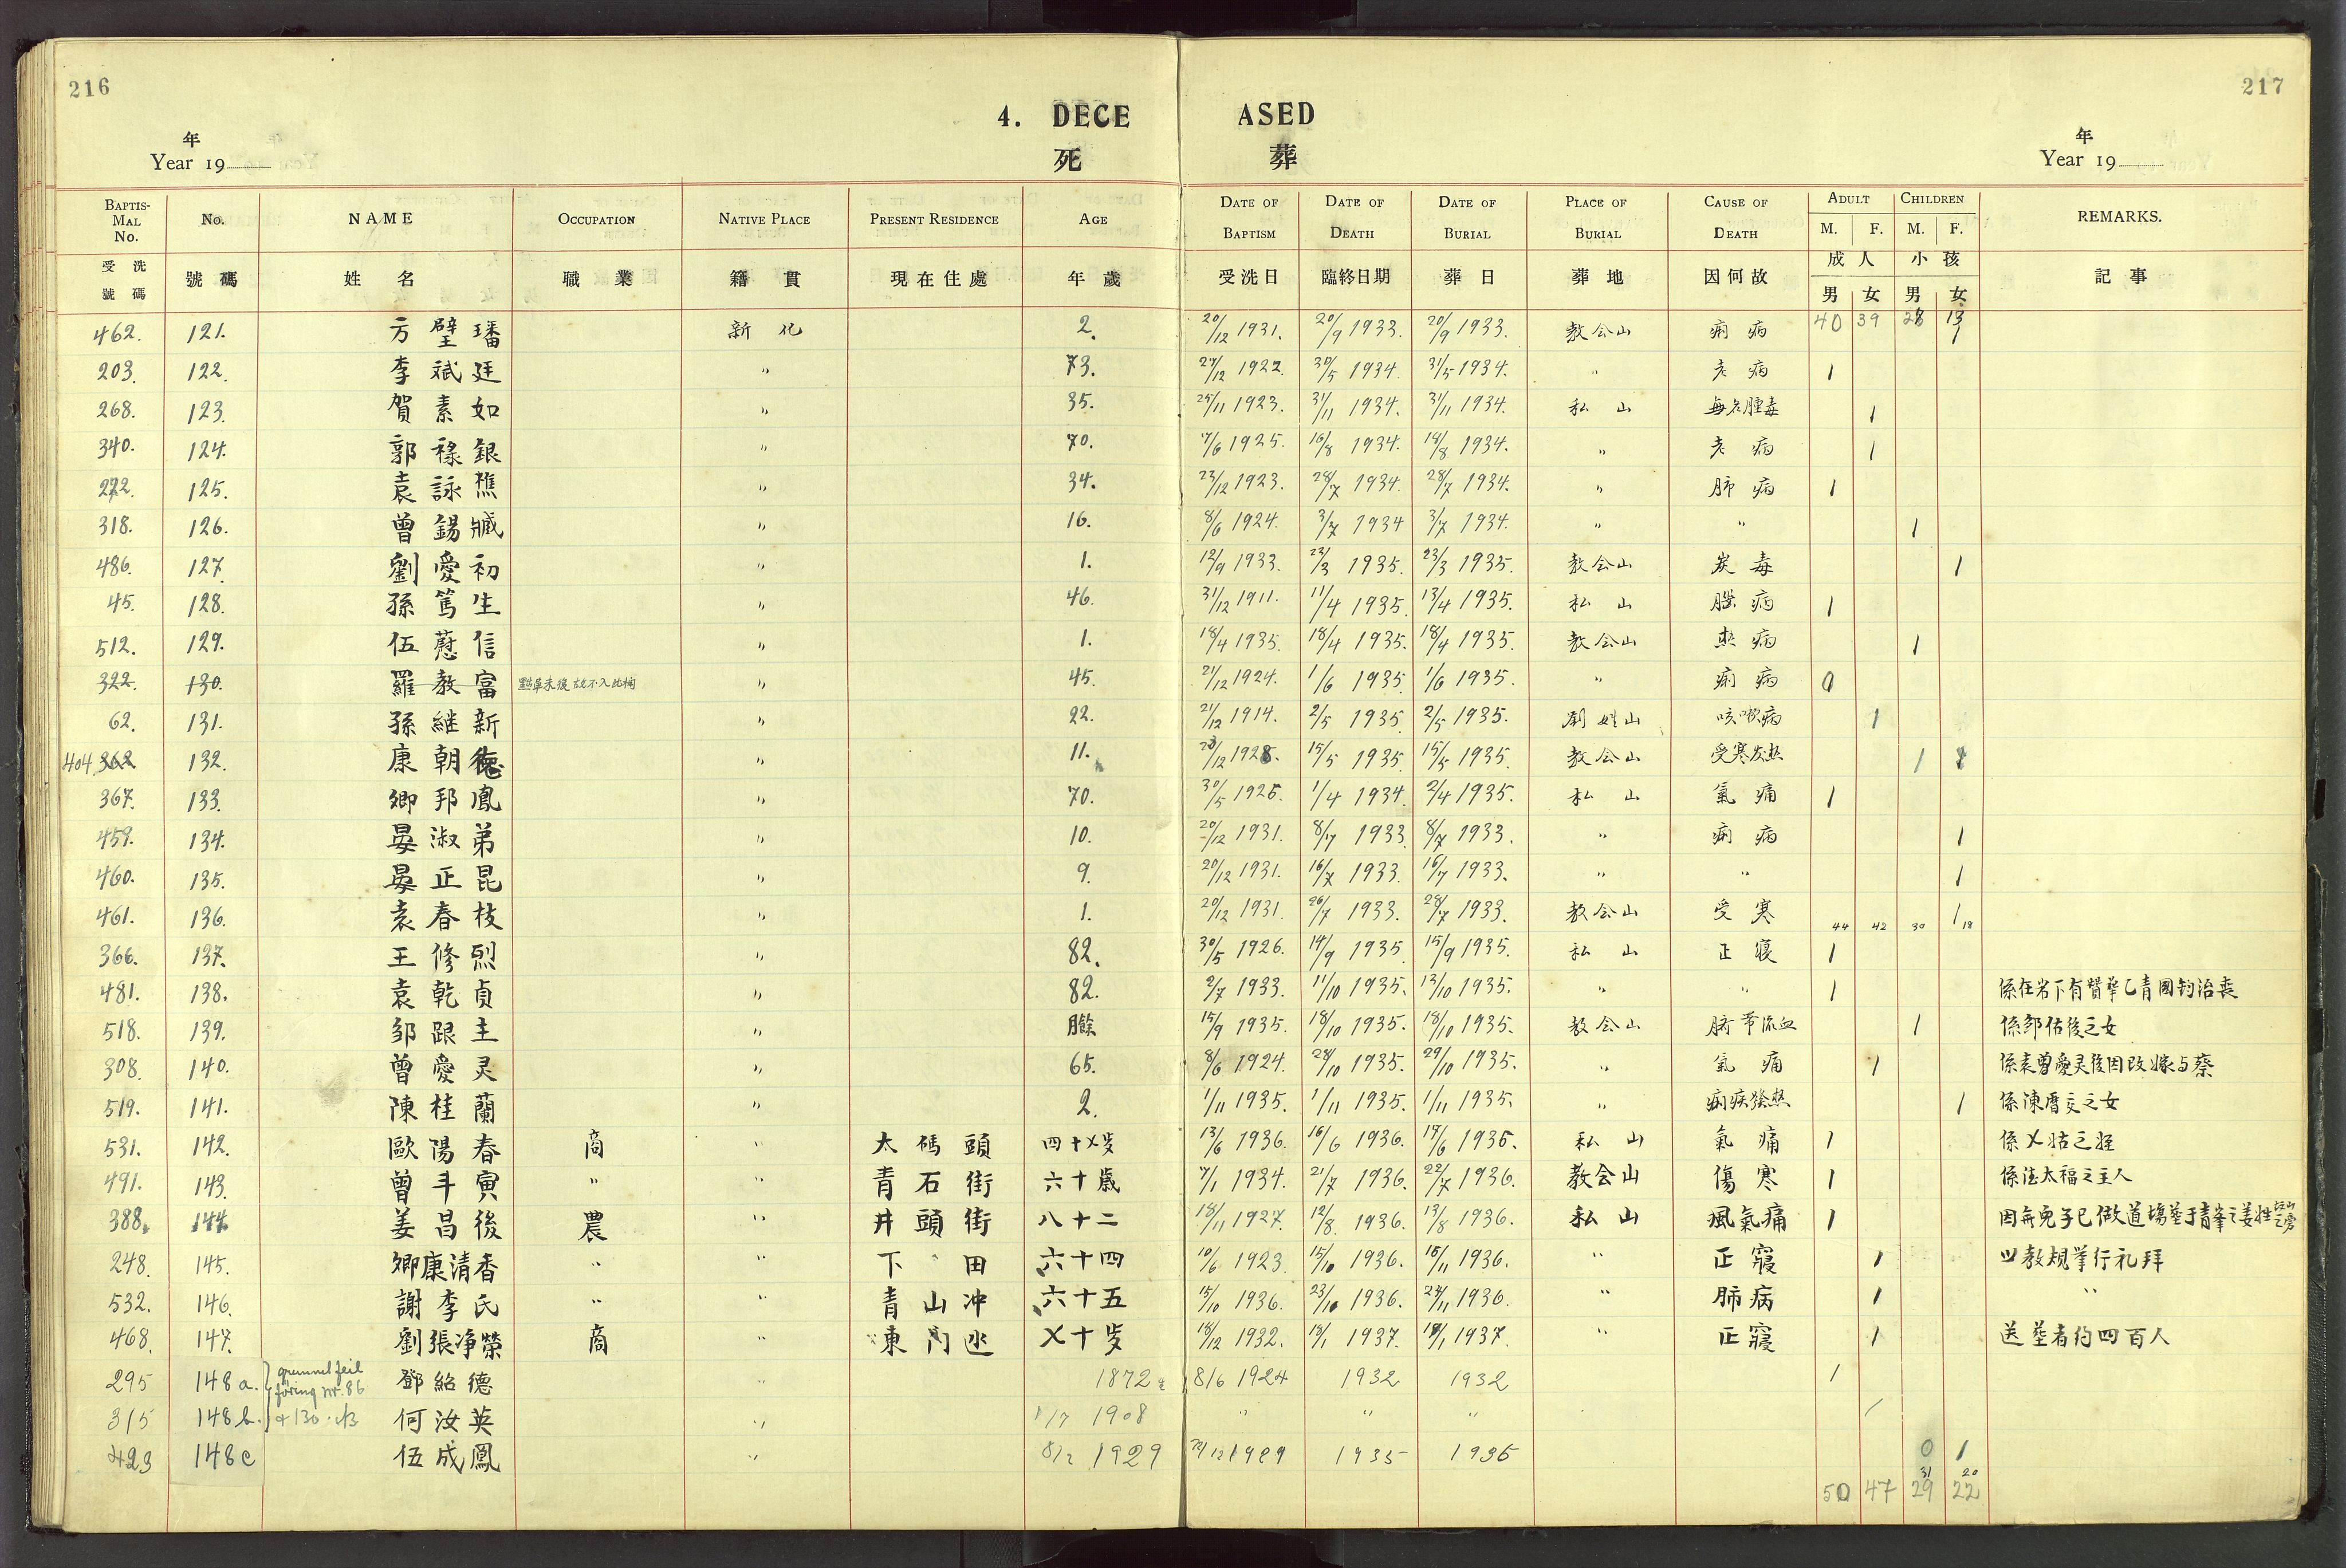 216
217
4. DECE ASED
死 葬
年 年
Year 19 Year 19
BAPTISMAL No. No. NAME OCCUPATION NATIVE PLACE PRESENT RESIDENCE AGE DATE OF BAPTISM DATE OF DEATH DATE OF BURIAL PLACE OF BURIAL CAUSE OF DEATH ADULT M. F. CHILDREN M. F. REMARKS.
受洗號碼 號碼 姓名 職業 籍貫 現在住處 年歲 受洗日 臨終日期 葬日 葬地 因何故 成人 男 女 小孩 男 女 記事
40 39 28 13
462. 121. 方璧璠 新化 2. 20/12 1931. 20/9 1933. 20/9 1933. 教会山 痢病 1
203. 122. 李斌廷 " 73. 24/12 1922. 30/5 1934. 31/5 1934. " 老病 1
268. 123. 賀素如 " 35. 25/11 1923. 31/11 1934. 31/11 1934. 私山 無名腫毒 1
340. 124. 郭祿銀 " 70. 7/6 1925. 16/8 1934. 18/8 1934. " 老病 1
272. 125. 袁詠樵 " 34. 23/12 1923. 28/7 1934. 28/7 1934. " 肺病 1
318. 126. 曾錫 " 16. 8/6 1924. 3/7 1934 3/7 1934. " " 1
486. 127. 劉愛初 " 1. 12/9 1933. 22/3 1935. 23/3 1935. 教会山 炭毒 1
45. 128. 孫篤生 " 46. 31/12 1911. 11/4 1935. 13/4 1935. 私山 病 1
512. 129. 伍慰信 " 1. 18/4 1935. 18/4 1935. 18/4 1935. 教会山 热病 1
322. 130. 羅教富 " 45. 21/12 1924. 1/6 1935. 1/6 1935. " 痢病 0
62. 131. 孫継新 " 22. 21/12 1914. 2/5 1935. 2/5 1935. 劉姓山 咳嗽病 1
404 362 132. 康朝德 " 11. 23/12 1928. 15/5 1935. 15/5 1935. 教会山 受寒发热 1
367. 133. 卿邦鳳 " 70. 30/5 1926. 1/4 1934. 2/4 1935. 私山 氣痛 1
459. 134. 晏淑弟 " 10. 20/12 1931. 8/7 1933. 8/7 1933. " 痢病 1
460. 135. 晏正昆 " 9. 20/12 1931. 16/7 1933. 16/7 1933. " " 1
461. 136. 袁春枝 " 1. 20/12 1931. 26/7 1933. 28/7 1933. 教会山 受寒 44 42 30 1 18
366. 137. 王修烈 " 82. 30/5 1926. 14/9 1935. 15/9 1935. 私山 正寝 1
481. 138. 袁乾貞 " 82. 2/7 1933. 11/10 1935. 13/10 1935. " " 1
518. 139. 邹跟主 " 15/9 1935. 18/10 1935. 18/10 1935. 教会山 脐带流血 1 係邹估後之女
308. 140. 曾愛灵 " 65. 8/6 1924. 28/10 1935. 29/10 1935. " 氣痛 1 係袁曾愛灵後因改嫁与蔡
519. 141. 陳桂蘭 " 2. 1/11 1935. 1/11 1935. 1/11 1935. " 痢疾發热 1 係陳之女
531. 142. 歐陽春 商 " 太碼頭 四十〤岁 13/6 1936. 16/6 1936. 17/6 1936. 私山 氣痛 1 係〤姑之姪
491. 143. 曾斗寅 " " 青石街 六十歲 7/1 1934. 21/7 1936. 22/7 1936. 教会山 傷寒 1 係法太福之主人
388. 144. 姜昌後 農 " 井頭街 八十二 18/11 1927. 12/8. 1936. 13/8 1936. 私山 風氣痛 1
248. 145. 卿康清香 " " 下田 六十四 10/6 1923. 15/10 1936. 16/11 1936. " 正寢 1 教規举行礼拜
532. 146. 謝李氏 " " 青山冲 六十五 15/10 1936. 23/10 1936. 24/11 1936. " 肺病 1 "
468. 147. 劉張净榮 商 " 東門 〤十岁 18/12 1932. 18/1 1937. 19/1 1937. " 正寢 1 送塟者约四百人
295 148 a. } grunnet feil føring nr. 86 鄧紹德 " 1872 生 8/6 1924 1932 1932 1
315 148 b. } & 130 何汝英 " 1/7 1908 " " " 1
423 148 c 伍成鳳 " 8/2 1929 22/12 1929 1935 1935 0 1
31 20
50 47 29 22